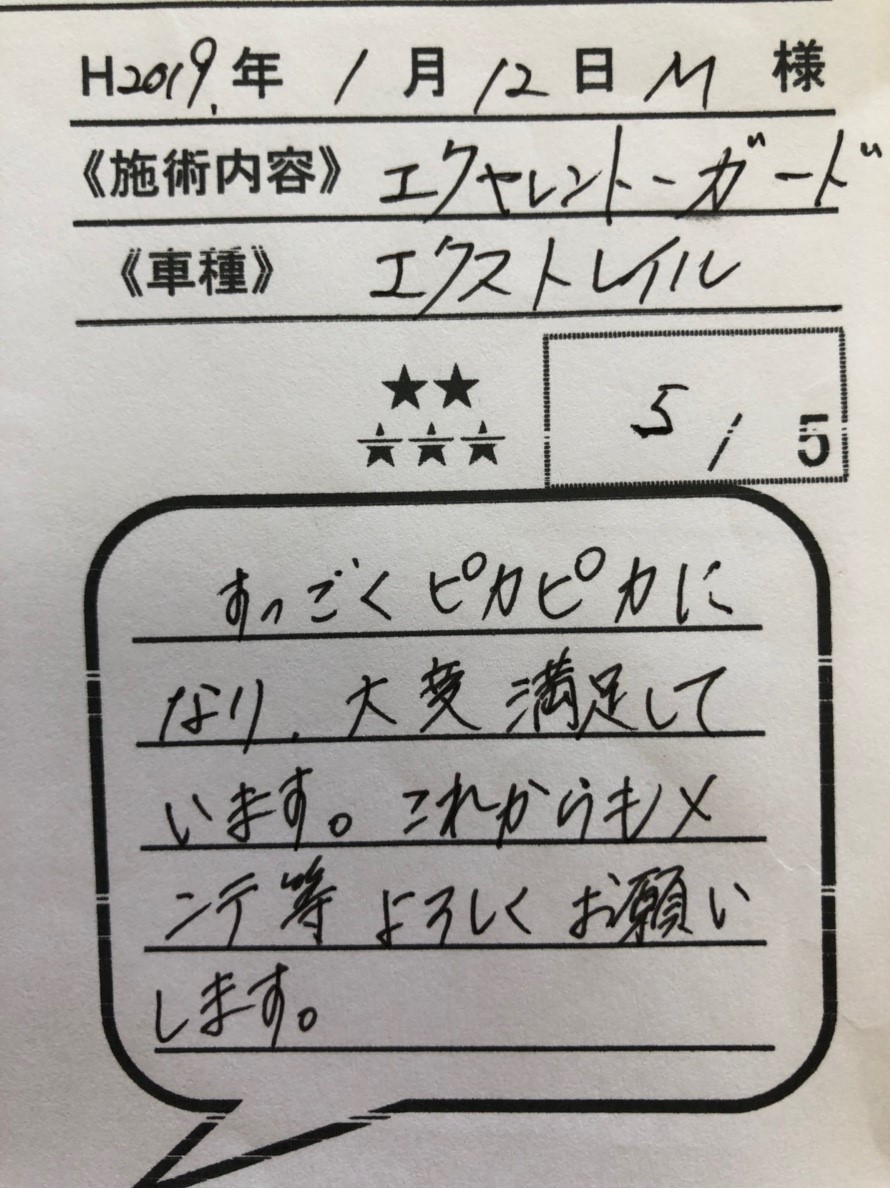 H2019年 1月12日 M 様
《施術内容》 エクャレントーガード
《車種》 エクストレイル
★★
★★★
5/5
すっごくピカピカに
なり、大変満足して
います。これからもメ
ンテ等よろしくお願い
します。